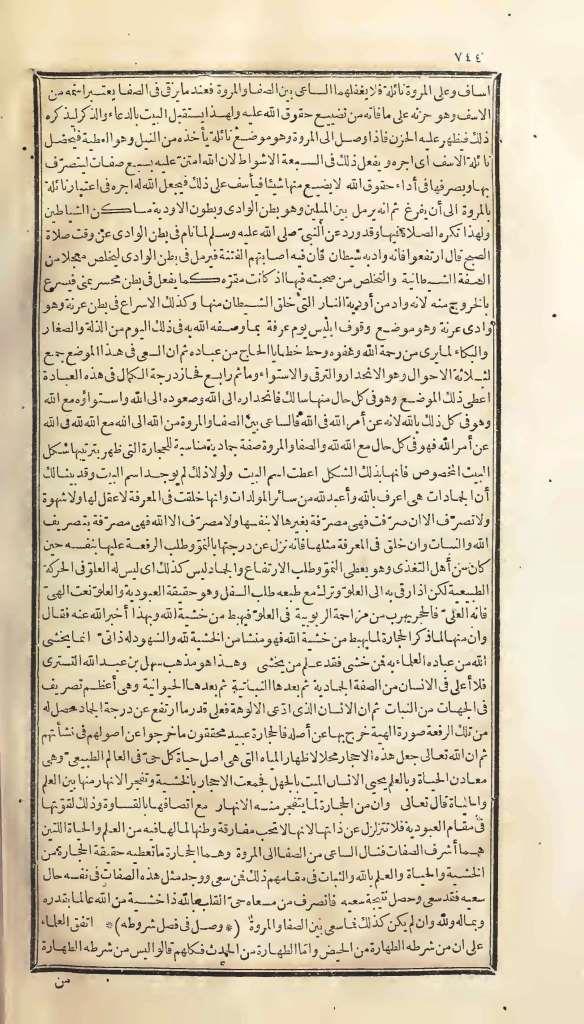 ٧٤٤
اساف وعلى المروة نائلة فلا يغفلهما الساعي بين الصفا والمروة فعند ما يرقى في الصفا يعتبر اسمه من
الاسف وهو حزنه على ما فاته من تضييع حقوق الله عليه ولهذا يستقبل البيت بالدعاء والذكر ليذكره
ذلك فيظهر عليه الحزن فاذا وصل الى المروة وهو موضع نائلة يأخذه من النيل وهو العطية فيحصل
نائلة الاسف أى اجره ويفعل ذلك في السبعة الاشواط لان الله امتن عليه بسبع صفات ليتصرف
بها ويصرفها في أداء حقوق الله لا يضيع منها شيئا فيأسف على ذلك فيجعل الله له اجره في اعتبار نائلة
بالمروة الى أن يفرغ ثم انه يرمل بين الميلين وهو بطن الوادى وبطون الاودية مساكن الشياطين
ولهذا تكره الصلاة فيها وقد ورد عن النبي صلى الله عليه وسلم لما نام في بطن الوادى عن وقت صلاة
الصبح قال ارتفعوا فانه واد به شيطان فان فيه اصابتهم الفتنة فيرمل في بطن الوادى ليخلص معجلا من
الصفة الشيطانية والتخلص من صحبته فيها اذ كانت مقره كما يفعل في بطن محسر بمنى فيسرع
بالخروج منه لانه واد من أودية النار التي خلق الشيطان منها وكذلك الاسراع في بطن عرنة وهو
وادى عرنة وهو موضع وقوف ابليس يوم عرفة بما وصفه الله به في ذلك اليوم من الذلة والصغار
والبكاء لما يرى من رحمة الله وعفوه وحط خطايا الحاج من عباده ثم ان السعى في هذا الموضع جمع
لثلاثة الاحوال وهو الانحدار والترقى والاستواء وما ثم رابع فحاز درجة الكمال في هذه العبادة
اعطى ذلك الموضع وهو في كل حال منها سالك فانحداره الى الله وصعوده الى الله واستواؤه مع الله
وهو في كل ذلك بالله لانه عن أمر الله في الله فالساعي بين الصفا والمروة من الله الى الله مع الله لله في الله
عن أمر الله فهو في كل حال مع الله لله والصفا والمروة صفة جمادية مناسبة للحجارة التي ظهر بترتيبها شكل
البيت المخصوص فانها بذلك الشكل اعطت اسم البيت ولولا ذلك لم يوجد اسم البيت وقد بينا لك
أن الجمادات هى اعرف بالله وأعبد لله من سائر المولدات وانها خلقت في المعرفة لا عقل لها ولا شهوة
ولا تصرف الا ان صرفت فهى مصرفة بغيرها لا بنفسها ولا مصرف الا الله فهى مصرفة بتصريف
الله والنبات وان خلق في المعرفة مثلها فانه نزل عن درجتها بالنمو وطلب الرفعة عليها بنفسه حين
كان من أهل التغذى وهو يعطى النمو وطلب الارتفاع والجماد ليس كذلك اى ليس له العلو في الحركة
الطبيعية لكن اذا رقى به الى العلو وترك مع طبعه طلب السفل وهو حقيقة العبودية والعلو نعت الهى
فانه العلى فالحجر يهرب من مزاحمة الربوبية في العلو فيهبط من خشية الله وبهذا أخبر الله عنه فقال
وان منها لما ذكر الحجارة لما يهبط من خشية الله فهو منشأ من الخشية لله والشهود له ذاتى انما يخشى
الله من عباده العلماء به فمن خشى فقد علم من يخشى وهذا هو مذهب سهل بن عبد الله التسترى
فلا أعلى في الانسان من الصفة الجمادية ثم بعدها النباتية ثم بعدها الحيوانية وهى أعظم تصريف
في الجهات من النبات ثم ان الانسان الذى ادعى الالوهة فعلى قدر ما ارتفع عن درجة الجماد حصل له
من تلك الرفعة صورة الهية خرج بها عن أصله فالحجارة عبيد محققون ما خرجوا عن اصولهم في نشأتهم
ثم ان الله تعالى جعل هذه الاحجار محلا لاظهار المياه التى هى اصل حياة كل حى في العالم الطبيعى وهى
معادن الحياة وبالعلم يحيى الانسان الميت بالجهل فجمعت الاحجار بالخشية وتفجر الانهار منها بين العلم
والحياة قال تعالى وان من الحجارة لما يتفجر منه الانهار مع اتصافها بالقساوة وذلك لقوتها
في مقام العبودية فلا تتزلزل عن ذاتها لانها لا تحب مفارقة وطنها لما لها فيه من العلم والحياة اللتين
هما أشرف الصفات فنال الساعى من الصفا الى المروة وهما الحجارة ما تعطيه حقيقة الحجارة من
الخشية والحياة والعلم بالله والثبات في مقامهم ذلك فمن سعى ووجد مثل هذه الصفات في نفسه حال
سعيه فقد سعى وحصل نتيجة سعيه فانصرف من مسعاه حى القلب بالله ذا خشية من الله عالما بقدره
وبما له ولله وان لم يكن كذلك فما سعى بين الصفا والمروة * (وصل في فصل شروطه) * اتفق العلماء
على ان من شرطه الطهارة من الحيض واما الطهارة من الحدث فكلهم قالوا ليس من شرطه الطهارة
من